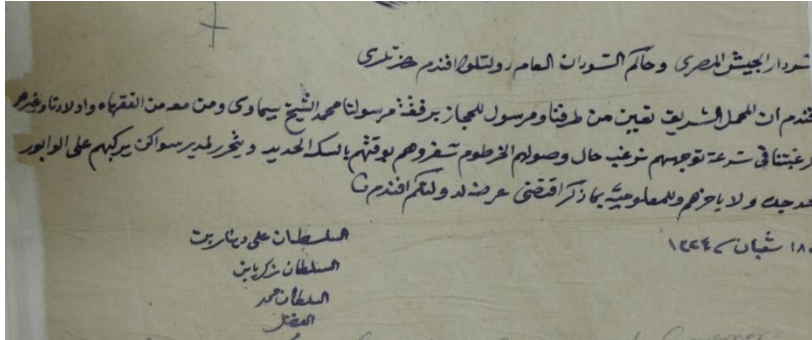 سردار الجيش المصرى وحاكم السودان العام دولتلو افندم حضرتلرى
افندم ان المحمل الشريف تعين من طرفنا ومرسول للحجاز برفقة مرسولنا محمد الشيخ سيماوى ومن معه من الفقهاء واولادنا وغيرهم
رغبتنا فى سرعة توجههم نرغب حال وصولهم الخرطوم تسفروهم بوقتهم بالسكه الحديد ويتحرر لمدير سواكن يركبهم على الوابور
جده ولا ياخرهم وللمعلوميه بما ذكر اقتضى عرضه لدولتكم افندم
١٨ شعبان ١٣٢٤
السلطان على دينار بن
السلطان زكريا بن
السلطان محمد
الفضل